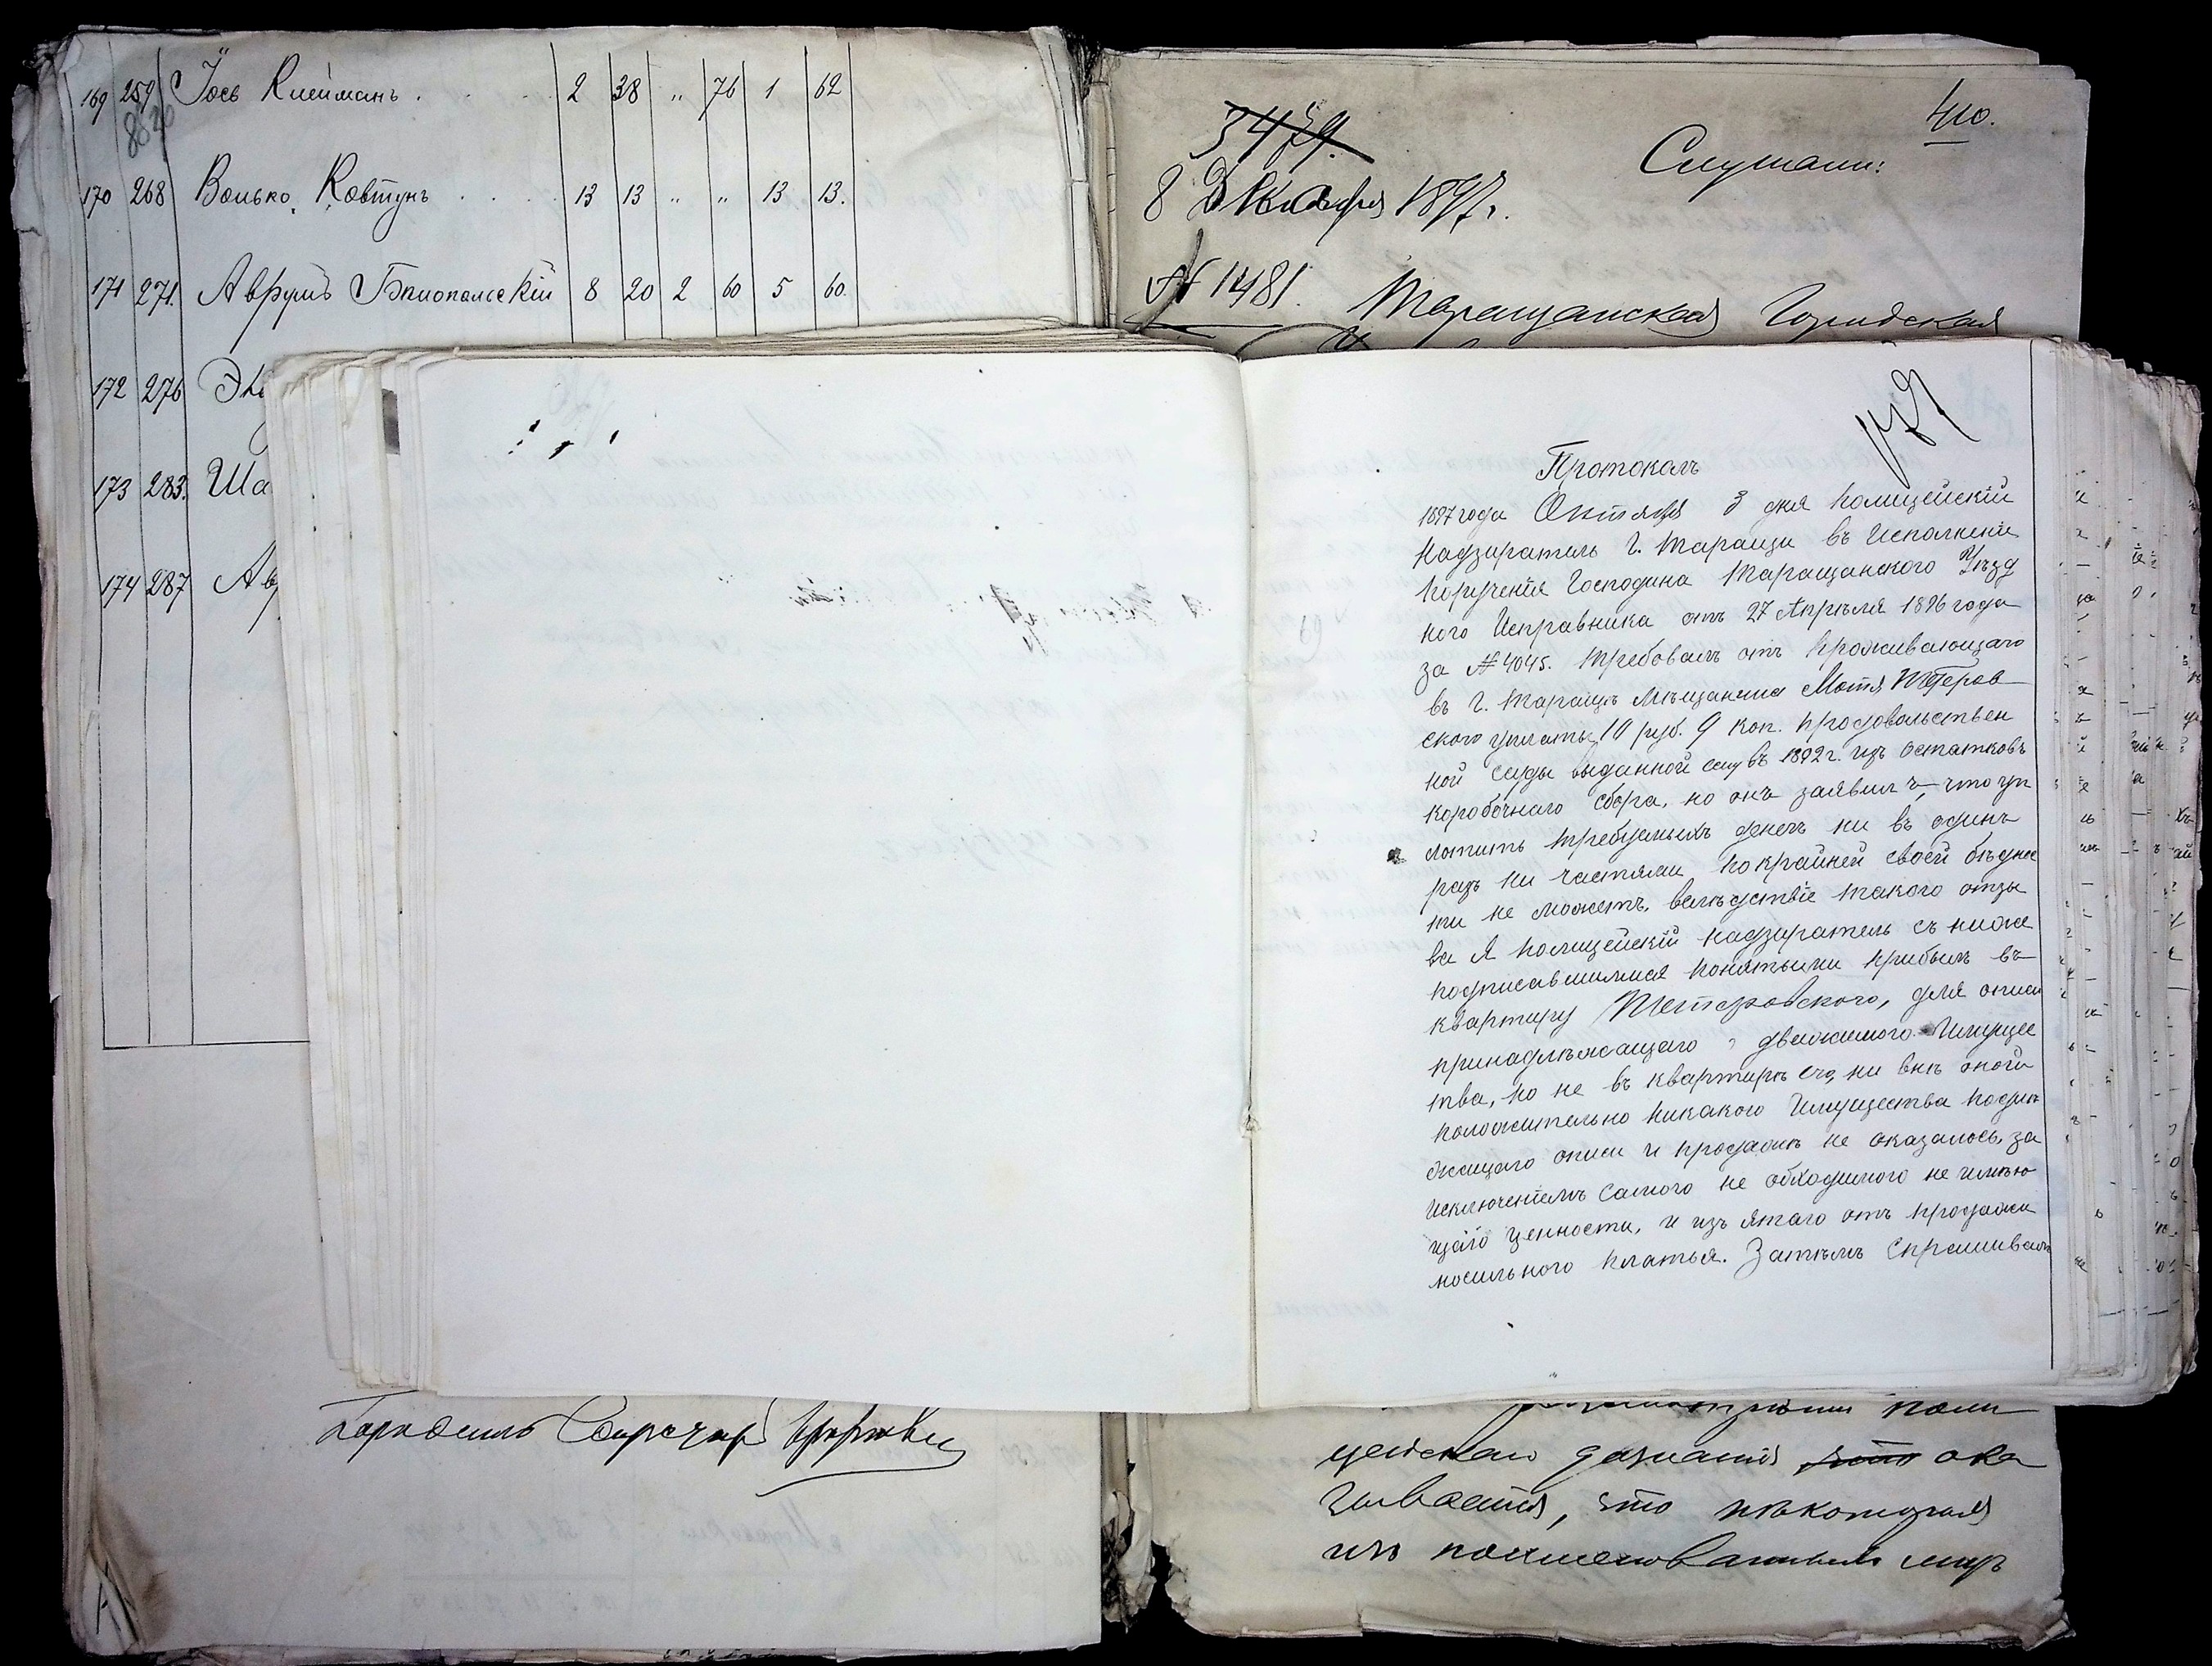 169 259 Іось Клейманъ . . . 2 38 „ 76 1 62
170 268 Волько Ковтунъ . . . 13 13 „ „ 13 13.
171 271. Аврумъ Бялопольскій 8 20 2 60 5 60.
172 276
173 283. Ша
174 287 Ав
410.
3479.
Слушали:
8 Декабря 1897 г.
№ 1481. Таращанская Городская
Протоколъ
1897 года Октября 3 дня полицейскій
Надзиратель г. Таращи въ Исполненіе
порученія Господина Таращанского Уѣзд
ного Исправника отъ 27 Апрѣля 1896 года
за № 4045. требовалъ отъ проживающаго
въ г. Таращѣ мѣщанина Мотя Тетеров
ского уплаты 10 руб. 9 коп. продовольствен
ной ссуды выданной ему въ 1892 г. изъ остатковъ
коробочнаго сбора, но онъ заявилъ, что уп
латить требуемыхъ денегъ ни въ одинъ
разъ ни частями по крайней своей бѣдно
ти не можетъ, вслѣдствіе такого отзы
ва я полицейскій надзиратель съ ниже
подписавшимися понятыми прибылъ въ
квартиру Тетеровского, для описи
принадлежащаго движимого Имущес
тва, но не въ квартирѣ его, ни внѣ оной
положительно никакого Имущества подле
жащаго описи и продажѣ не оказалось, за
исключеніемъ самого не обходимого не имѣю
щаго ценности, и изъ ятаго отъ продажи
носильного платья. Затѣмъ спрашивалъ
поли
цейскаго дознанія что ока
зывается, что нѣкоторыя
изъ поименованныхъ лицъ